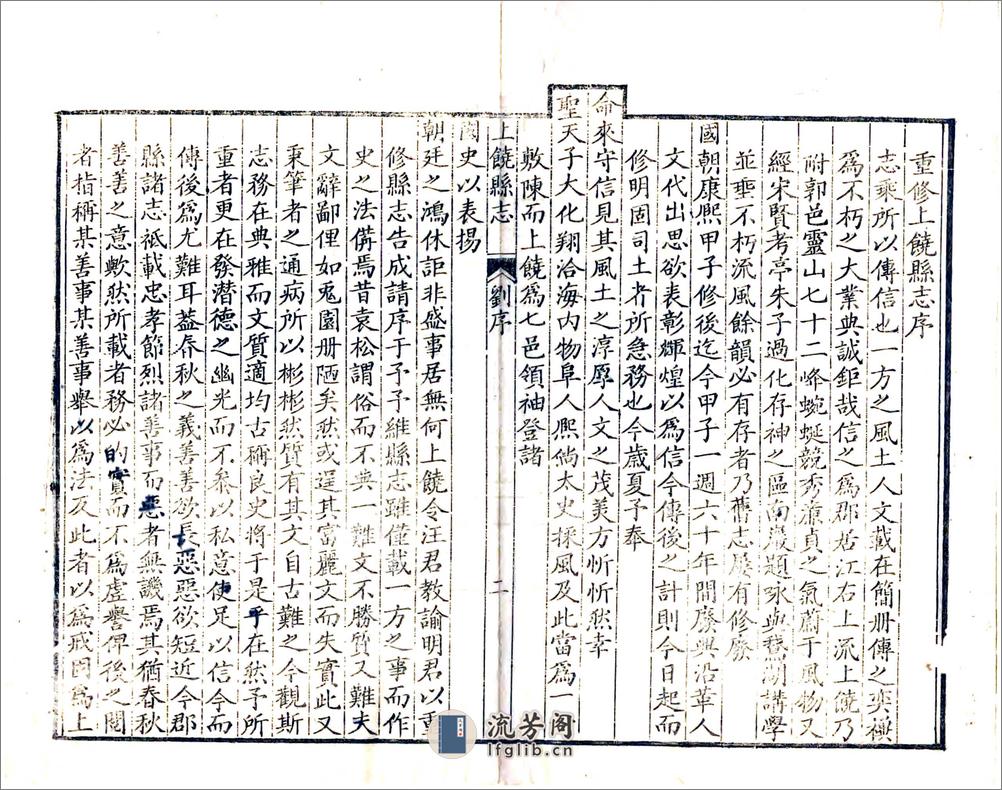 重修上饒縣志序
志乘所以傳信也一方之風土人文載在簡册傳之奕禩
爲不朽之大業典誠鉅哉信之爲郡居江右上流上饒乃
附郭邑靈山七十二峰蜿蜒競秀淑貞之氣蔚于風物又
經宋賢考亭朱子過化存神之區南巖題咏與鵝湖講學
並垂不朽流風餘韻必有存者乃舊志屡有修廢
國朝康熙甲子修後迄今甲子一週六十年間廢興沿革人
文代出思欲表彰輝煌以爲信今傳後之計則今日起而
修明固司土者所急務也今歲夏予奉
命來守信見其風土之淳厚人文之茂美方忻忻然幸
聖天子大化翔洽海内物阜人熙倘太史採風及此當爲一一
敷陳而上饒爲七邑領袖登諸
上饒縣志
劉序
二
國史以表揚
朝廷之鴻休詎非盛事居無何上饒令汪君教諭明君以重
修縣志告成請序于予予維縣志雖僅載一方之事而作
史之法偹焉昔袁松謂俗而不典一難文不勝質又難夫
文辭鄙俚如兎園册陋矣然或逞其富麗文而失實此又
秉筆者之通病所以彬彬然質有其文自古難之今觀斯
志務在典雅而文質適均古稱良史將于是乎在然予所
重者更在發潜德之幽光而不叅以私意使足以信今而
傳後爲尤難耳葢春秋之義善善欲長惡惡欲短近今郡
縣諸志祗載忠孝節烈諸善事而惡者無譏焉其猶春秋
善善之意歟然所載者務必的實而不爲虛譽俾後之閲
者指稱某善事某善事舉以爲法反此者以爲戒因爲上
流芳阁
lfglib.com